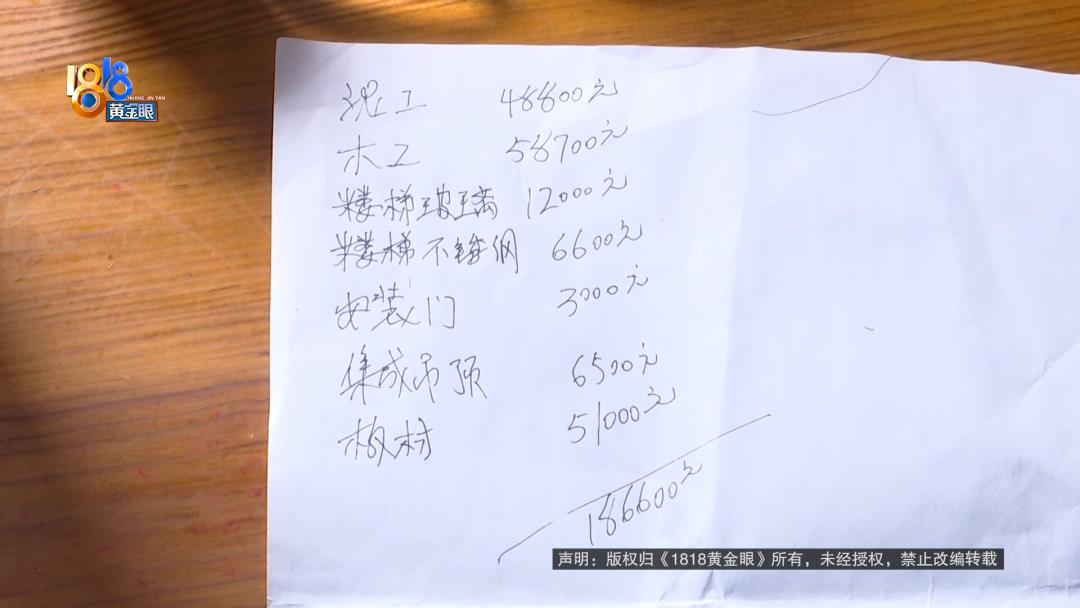 1818
HUANG JIN YAN
黄金眼
泥工 48800元
木工 58700元
楼梯玻璃 12000元
楼梯不锈钢 6600元
安装门 3000元
集成吊顶 6500元
板材 51000元
186600元
声明：版权归《1818黄金眼》所有，未经授权，禁止改编转载